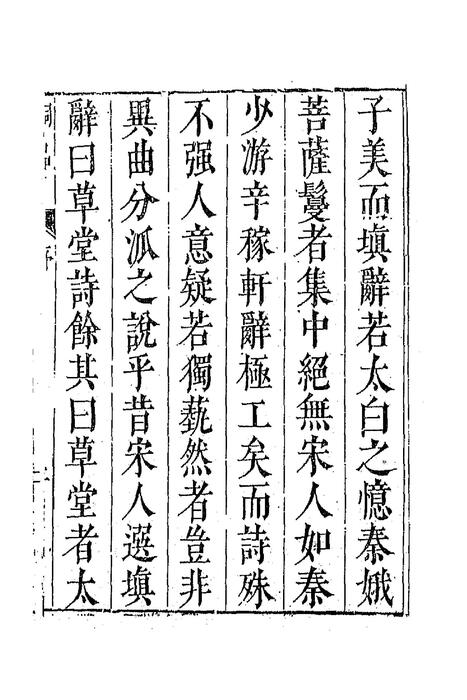 子美而塡辭若太白之憶秦娥
菩薩鬘者集中絕無宋人如秦
少游辛稼軒辭極工矣而詩殊
不强人意疑若獨蓺然者豈非
異曲分泒之說乎昔宋人選塡
辭曰草堂詩餘其曰草堂者太
序